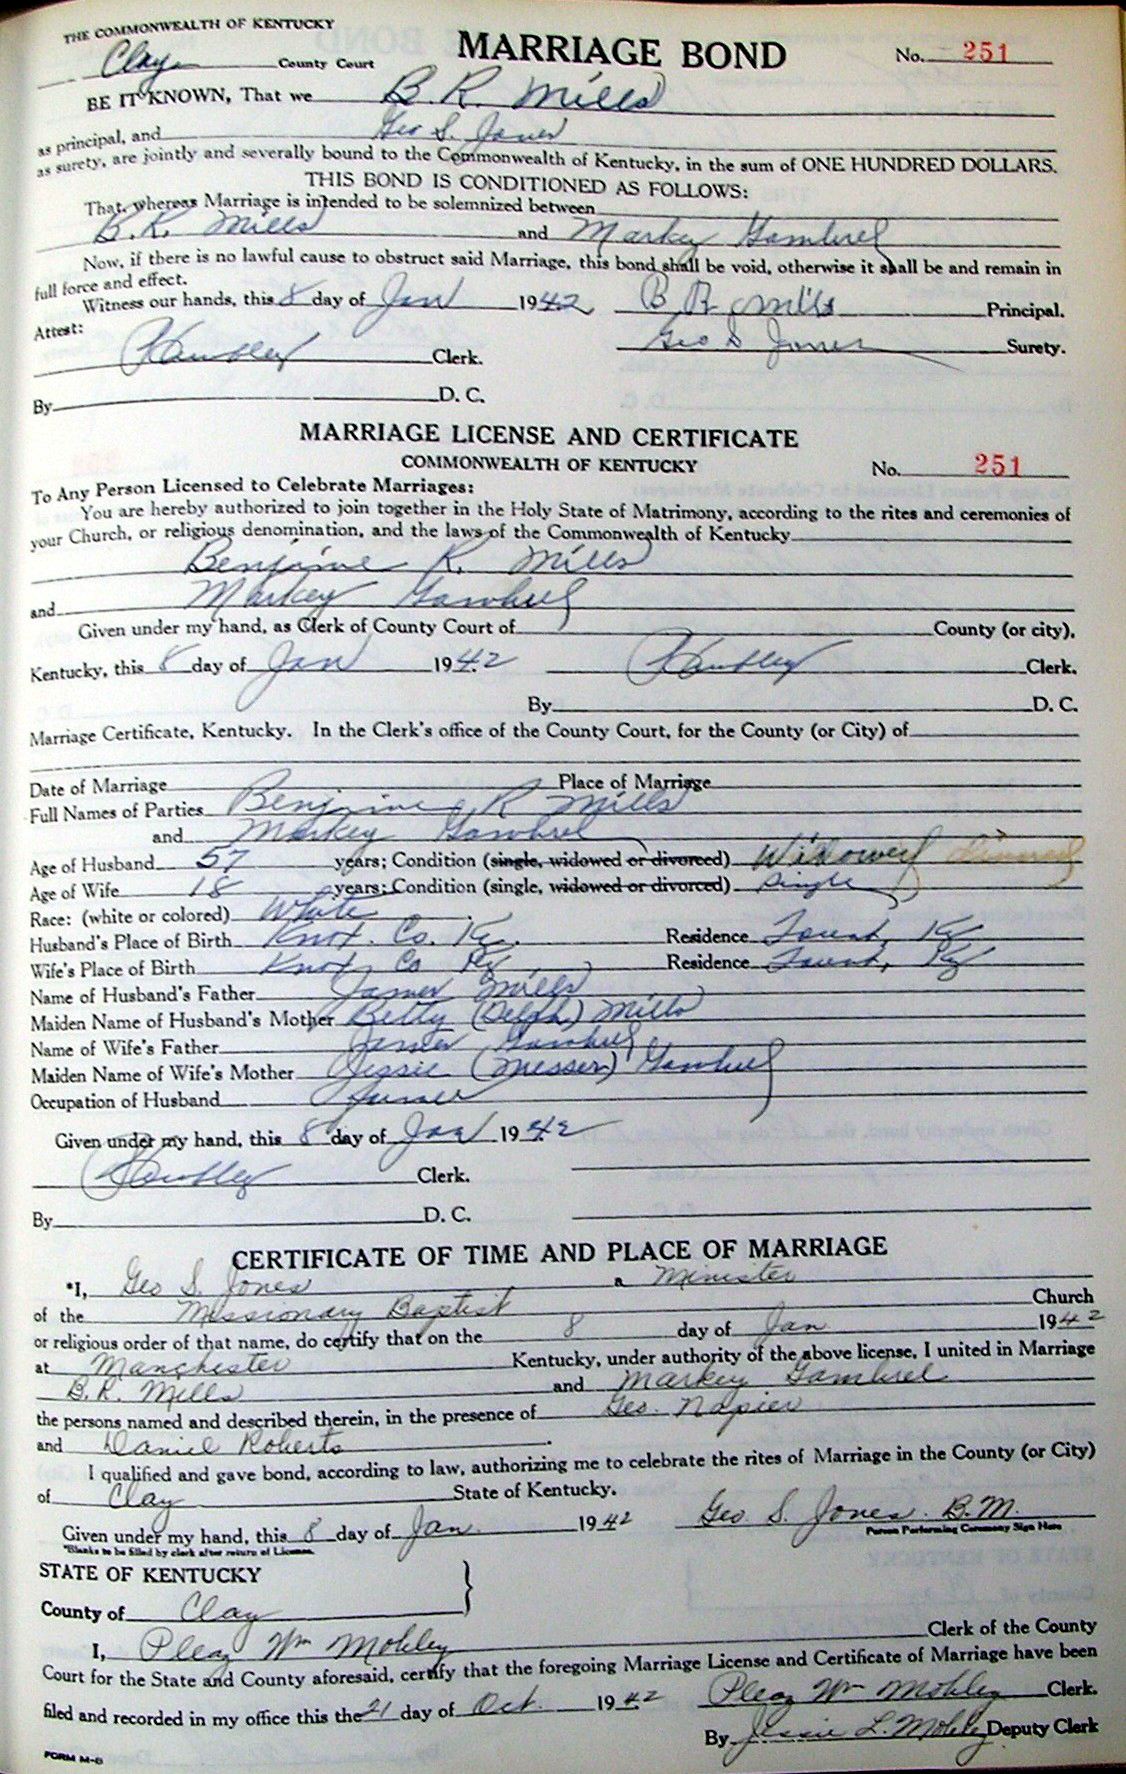 THE COMMONWEALTH OF KENTUCKY
MARRIAGE BOND No. 251
Clay County Court
BE IT KNOWN, That we B. R. Mills
as principal, and Geo S. Jones
as surety, are jointly and severally bound to the Commonwealth of Kentucky, in the sum of ONE HUNDRED DOLLARS.
THIS BOND IS CONDITIONED AS FOLLOWS:
That, whereas Marriage is intended to be solemnized between
B. R. Mills and Markey Gambrel
Now, if there is no lawful cause to obstruct said Marriage, this bond shall be void, otherwise it shall be and remain in
full force and effect.
Witness our hands, this 8 day of Jan 1942 B R Mills Principal.
Attest: Geo S Jones Surety.
Clerk.
By D. C.
MARRIAGE LICENSE AND CERTIFICATE
COMMONWEALTH OF KENTUCKY No. 251
To Any Person Licensed to Celebrate Marriages:
You are hereby authorized to join together in the Holy State of Matrimony, according to the rites and ceremonies of
your Church, or religious denomination, and the laws of the Commonwealth of Kentucky
Benjime R. Mills
and Markey Gambrel
Given under my hand, as Clerk of County Court of County (or city),
Kentucky, this 8 day of Jan 1942 Clerk.
By D. C.
Marriage Certificate, Kentucky. In the Clerk's office of the County Court, for the County (or City) of
Date of Marriage Place of Marriage
Full Names of Parties Benjime R Mills
and Markey Gambrel
Age of Husband 57 years; Condition (single, widowed or divorced) Widowed
Age of Wife 18 years; Condition (single, widowed or divorced) Single
Race: (white or colored) White
Husband's Place of Birth Knox. Co. Ky. Residence Ky
Wife's Place of Birth Knox Co Ky Residence Ky
Name of Husband's Father James Mills
Maiden Name of Husband's Mother Betty (Delph) Mills
Name of Wife's Father James Gambrel
Maiden Name of Wife's Mother Jessie (Messer) Gambrel
Occupation of Husband Farmer
Given under my hand, this 8 day of Jan 1942
Clerk.
By D. C.
CERTIFICATE OF TIME AND PLACE OF MARRIAGE
*I, Geo S. Jones a Minister
of the Missionary Baptist Church
or religious order of that name, do certify that on the 8 day of Jan 1942
at Manchester Kentucky, under authority of the above license, I united in Marriage
B. R. Mills and Markey Gambrel
the persons named and described therein, in the presence of Geo. Napier
and Daniel Roberts.
I qualified and gave bond, according to law, authorizing me to celebrate the rites of Marriage in the County (or City)
of Clay State of Kentucky.
Given under my hand, this 8 day of Jan. 1942 Geo S. Jones. B.M.
*Blanks to be filled by clerk after return of License. Person Performing Ceremony Sign Here
STATE OF KENTUCKY
County of Clay
I, Pleaz Wm Mobley Clerk of the County
Court for the State and County aforesaid, certify that the foregoing Marriage License and Certificate of Marriage have been
filed and recorded in my office this the 21 day of Oct. 1942 Pleaz Wm Mobley Clerk.
By Jessie L. Mobley Deputy Clerk
FORM M-6